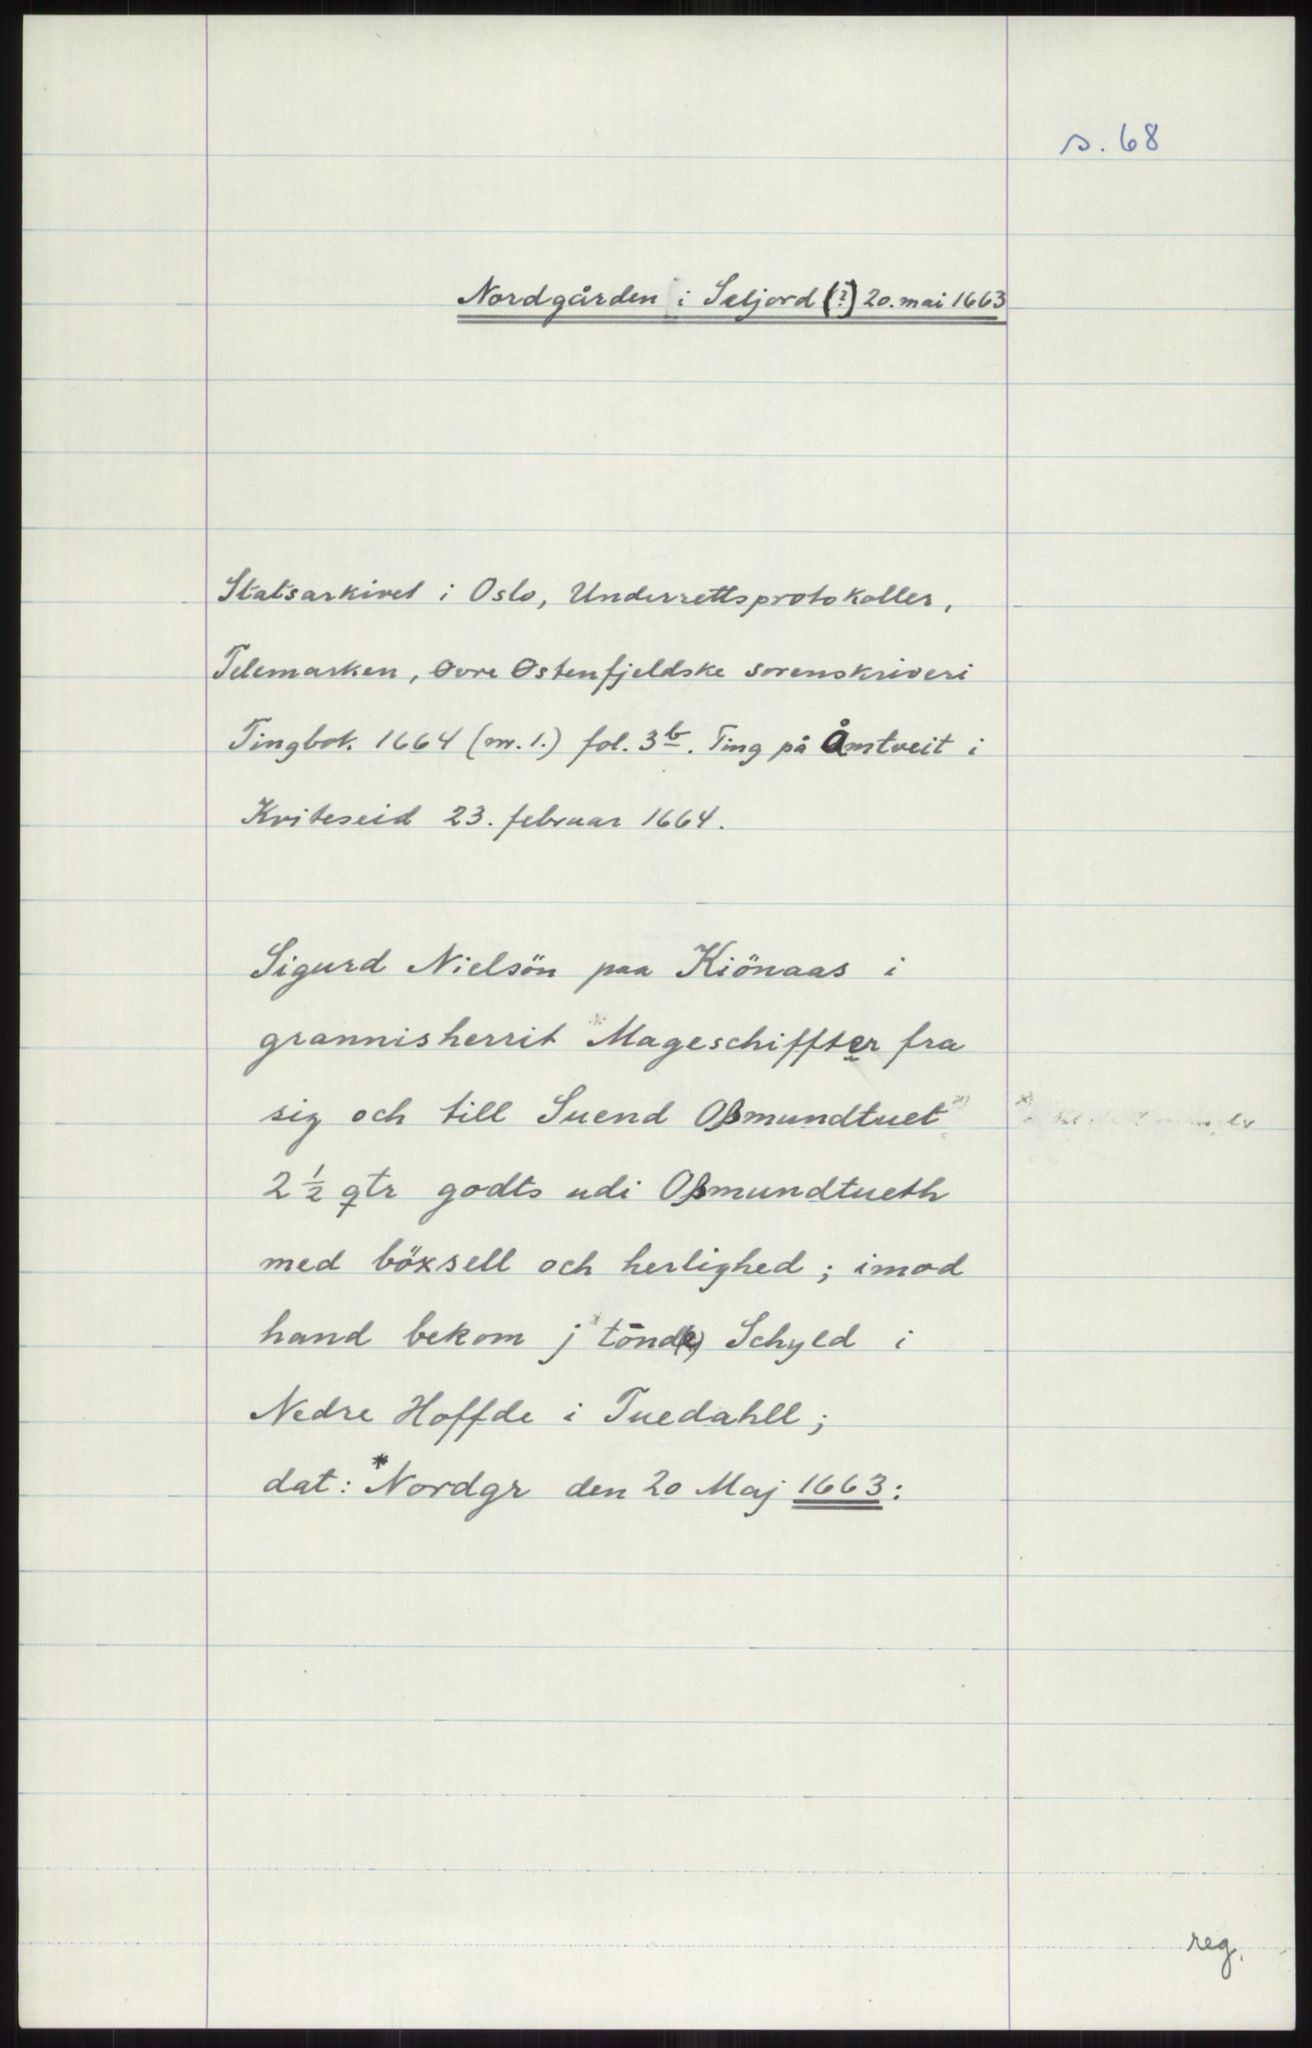 s. 68
Nordgården i Seljord (?) 20. mai 1663
Statsarkivet i Oslo, Underrettsprotokoller,
Telemarken, Øvre Østenfjeldske sorenskriveri
Tingbok 1664 (nr. 1.) fol. 3b. Ting på Åmtveit i
Kviteseid 23. februar 1664.
Sigurd Nielsön paa Kiönaas i
grannisherrit Mageschiffter fra
sig och till Suend Oßmundtuet
2 1/2 qtr godts udi Oßmundtueth
med böxsell och herlighed; imod
hand bekom j tönd(e) Schyld i
Nedre Hoffde i Tuedahll;
dat: *Nordgr den 20 Maj 1663:
reg.